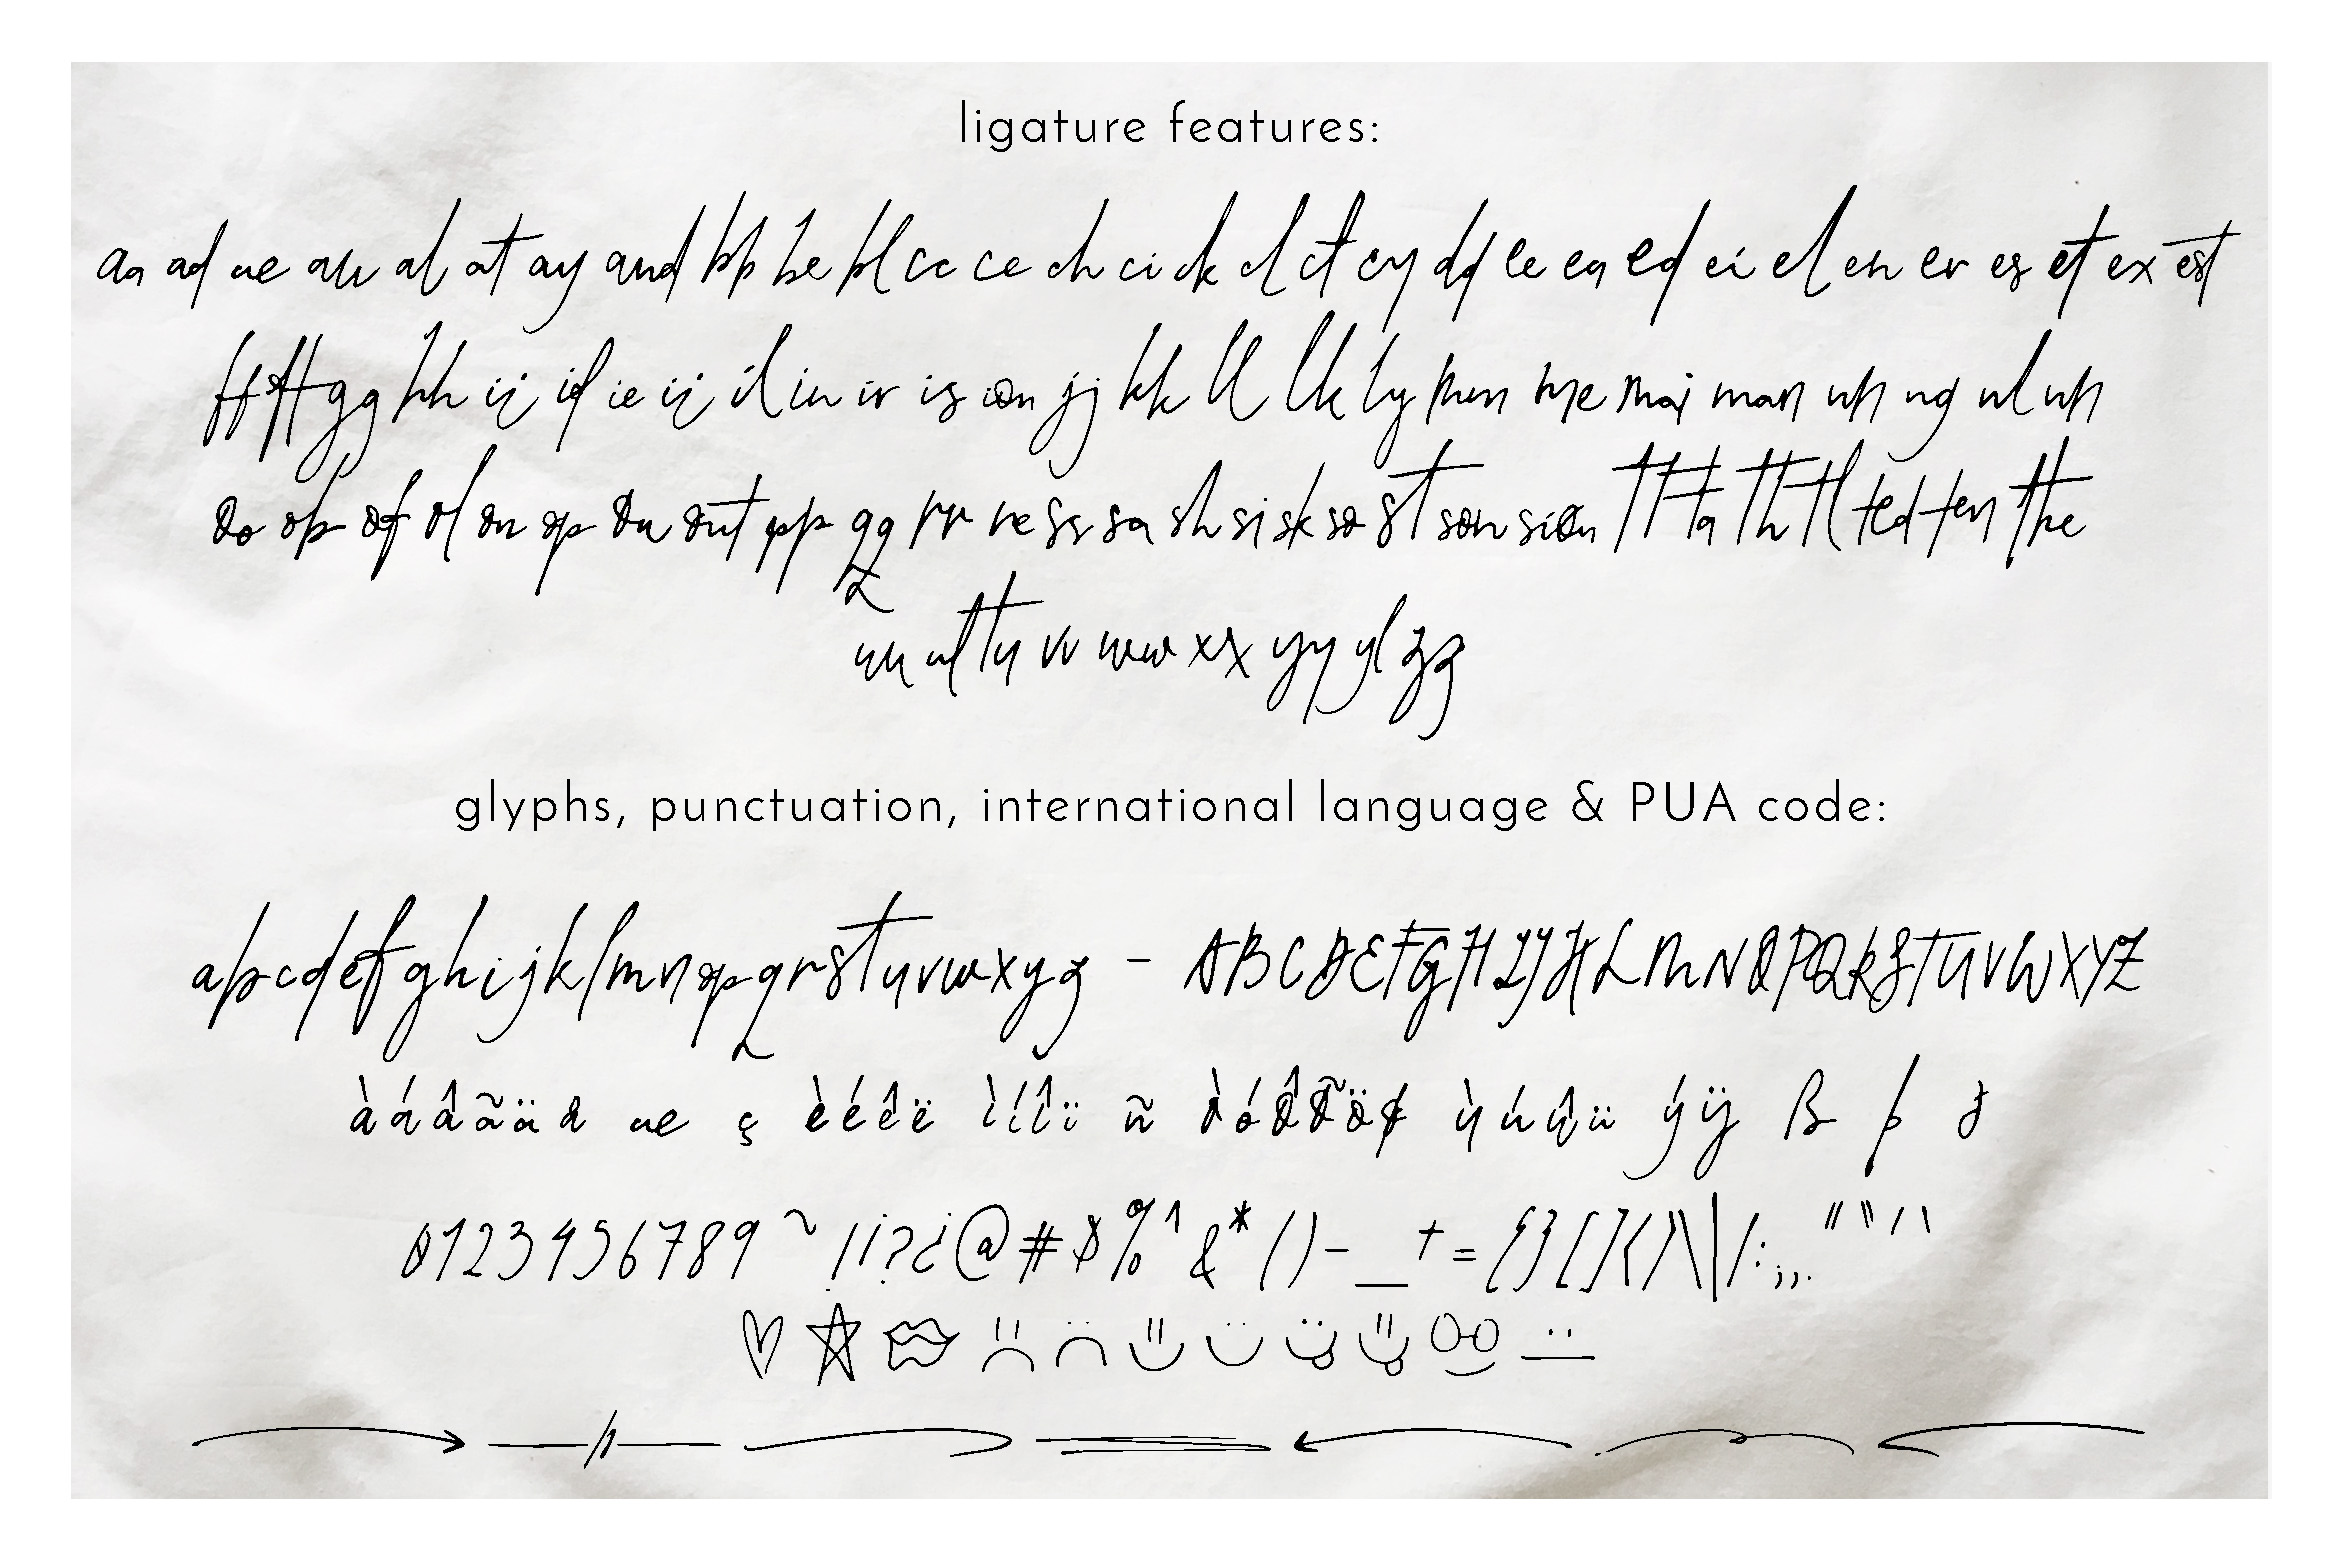 ligature features:
aa ad ae au al at ay and bb be bl cc ce ch ci ck cl ct cy dd ee ea ed ei el en er es et ex est
ff fft gg hh ij id ie ij il in ir is ion jj kk ll lk ly mm me maj man nn ng nl nn
oo ob of ol on op ou out pp qq rr re ss sa sh si sk so st son sion tt ta th tl ted ten the
uu ul tu vv ww xx yy yl zz
glyphs, punctuation, international language & PUA code:
abcdefghijklmnopqrstuvwxyz - ABCDEFGHIJKLMNOPQRSTUVWXYZ
àáâãäå æ ç èéêë ìíîï ñ òóôõöø ùúûü ýÿ ß þ
0123456789 ~ !¡?¿@#$%^&*()-_+={}[]<>\|/:;,."“'‘